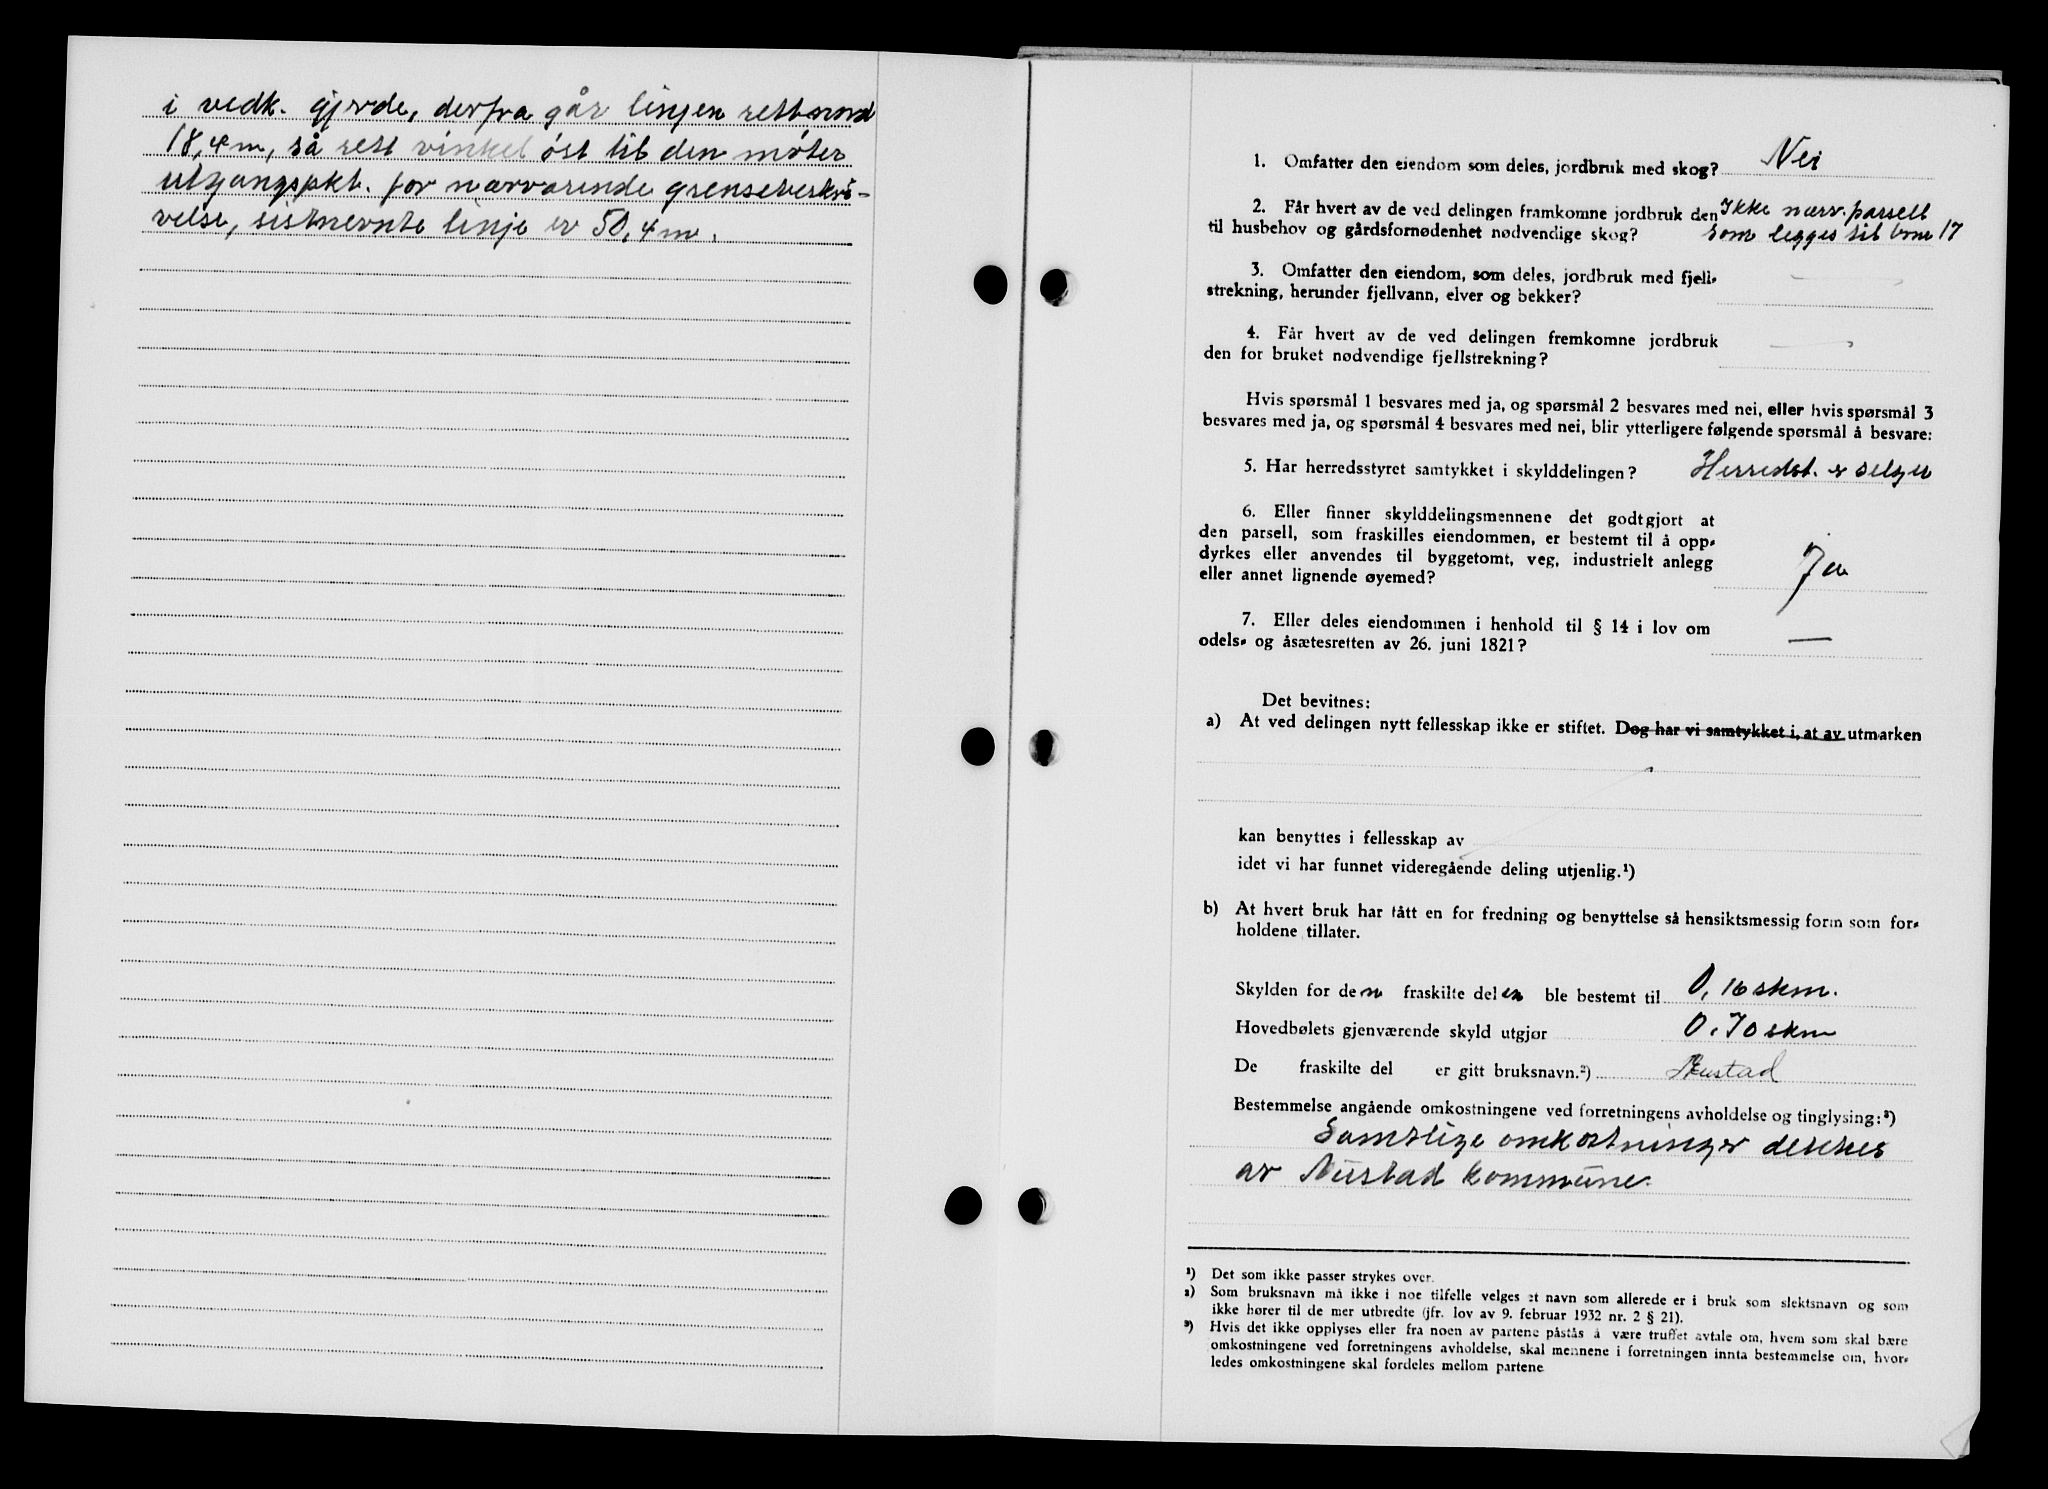 i vedk. gjerde, derfra går linjen rett nord
18,4 m, så rett vinkel øst til den møter
utgangspkt. for nærværende grensebeskri-
velse, sistnevnte linje er 50,4 m.
1. Omfatter den eiendom som deles, jordbruk med skog? Nei
2. Får hvert av de ved delingen framkomne jordbruk den Ikke nærv. parsell
til husbehov og gårdsfornødenhet nødvendige skog? som legges til bnr 17
3. Omfatter den eiendom, som deles, jordbruk med fjell-
strekning, herunder fjellvann, elver og bekker? —
4. Får hvert av de ved delingen fremkomne jordbruk
den for bruket nødvendige fjellstrekning? —
Hvis spørsmål 1 besvares med ja, og spørsmål 2 besvares med nei, eller hvis spørsmål 3
besvares med ja, og spørsmål 4 besvares med nei, blir ytterligere følgende spørsmål å besvare:
5. Har herredsstyret samtykket i skylddelingen? Herredst. er selger
6. Eller finner skylddelingsmennene det godtgjort at
den parsell, som fraskilles eiendommen, er bestemt til å opp-
dyrkes eller anvendes til byggetomt, veg, industrielt anlegg
eller annet lignende øyemed? Ja
7. Eller deles eiendommen i henhold til § 14 i lov om
odels- og åsætesretten av 26. juni 1821? —
Det bevitnes:
a) At ved delingen nytt fellesskap ikke er stiftet. Dog har vi samtykket i, at av utmarken
kan benyttes i fellesskap av
idet vi har funnet videregående deling utjenlig.¹)
b) At hvert bruk har fått en for fredning og benyttelse så hensiktsmessig form som for-
holdene tillater.
Skylden for den fraskilte delen ble bestemt til 0,16 skm.
Hovedbølets gjenværende skyld utgjør 0.70 skm
De fraskilte del er gitt bruksnavn.²)
Bestemmelse angående omkostningene ved forretningens avholdelse og tinglysing:³)
Samtlige omkostninger dekkes
av Nustad kommune.
¹) Det som ikke passer strykes over.
²) Som bruksnavn må ikke i noe tilfelle velges et navn som allerede er i bruk som slektsnavn og som
ikke hører til de mer utbredte (jfr. lov av 9. februar 1932 nr. 2 § 21).
³) Hvis det ikke opplyses eller fra noen av partene påstås å være truffet avtale om, hvem som skal bære
omkostningene ved forretningens avholdelse, skal mennene i forretningen innta bestemmelse om, hvor-
ledes omkostningene skal fordeles mellom partene